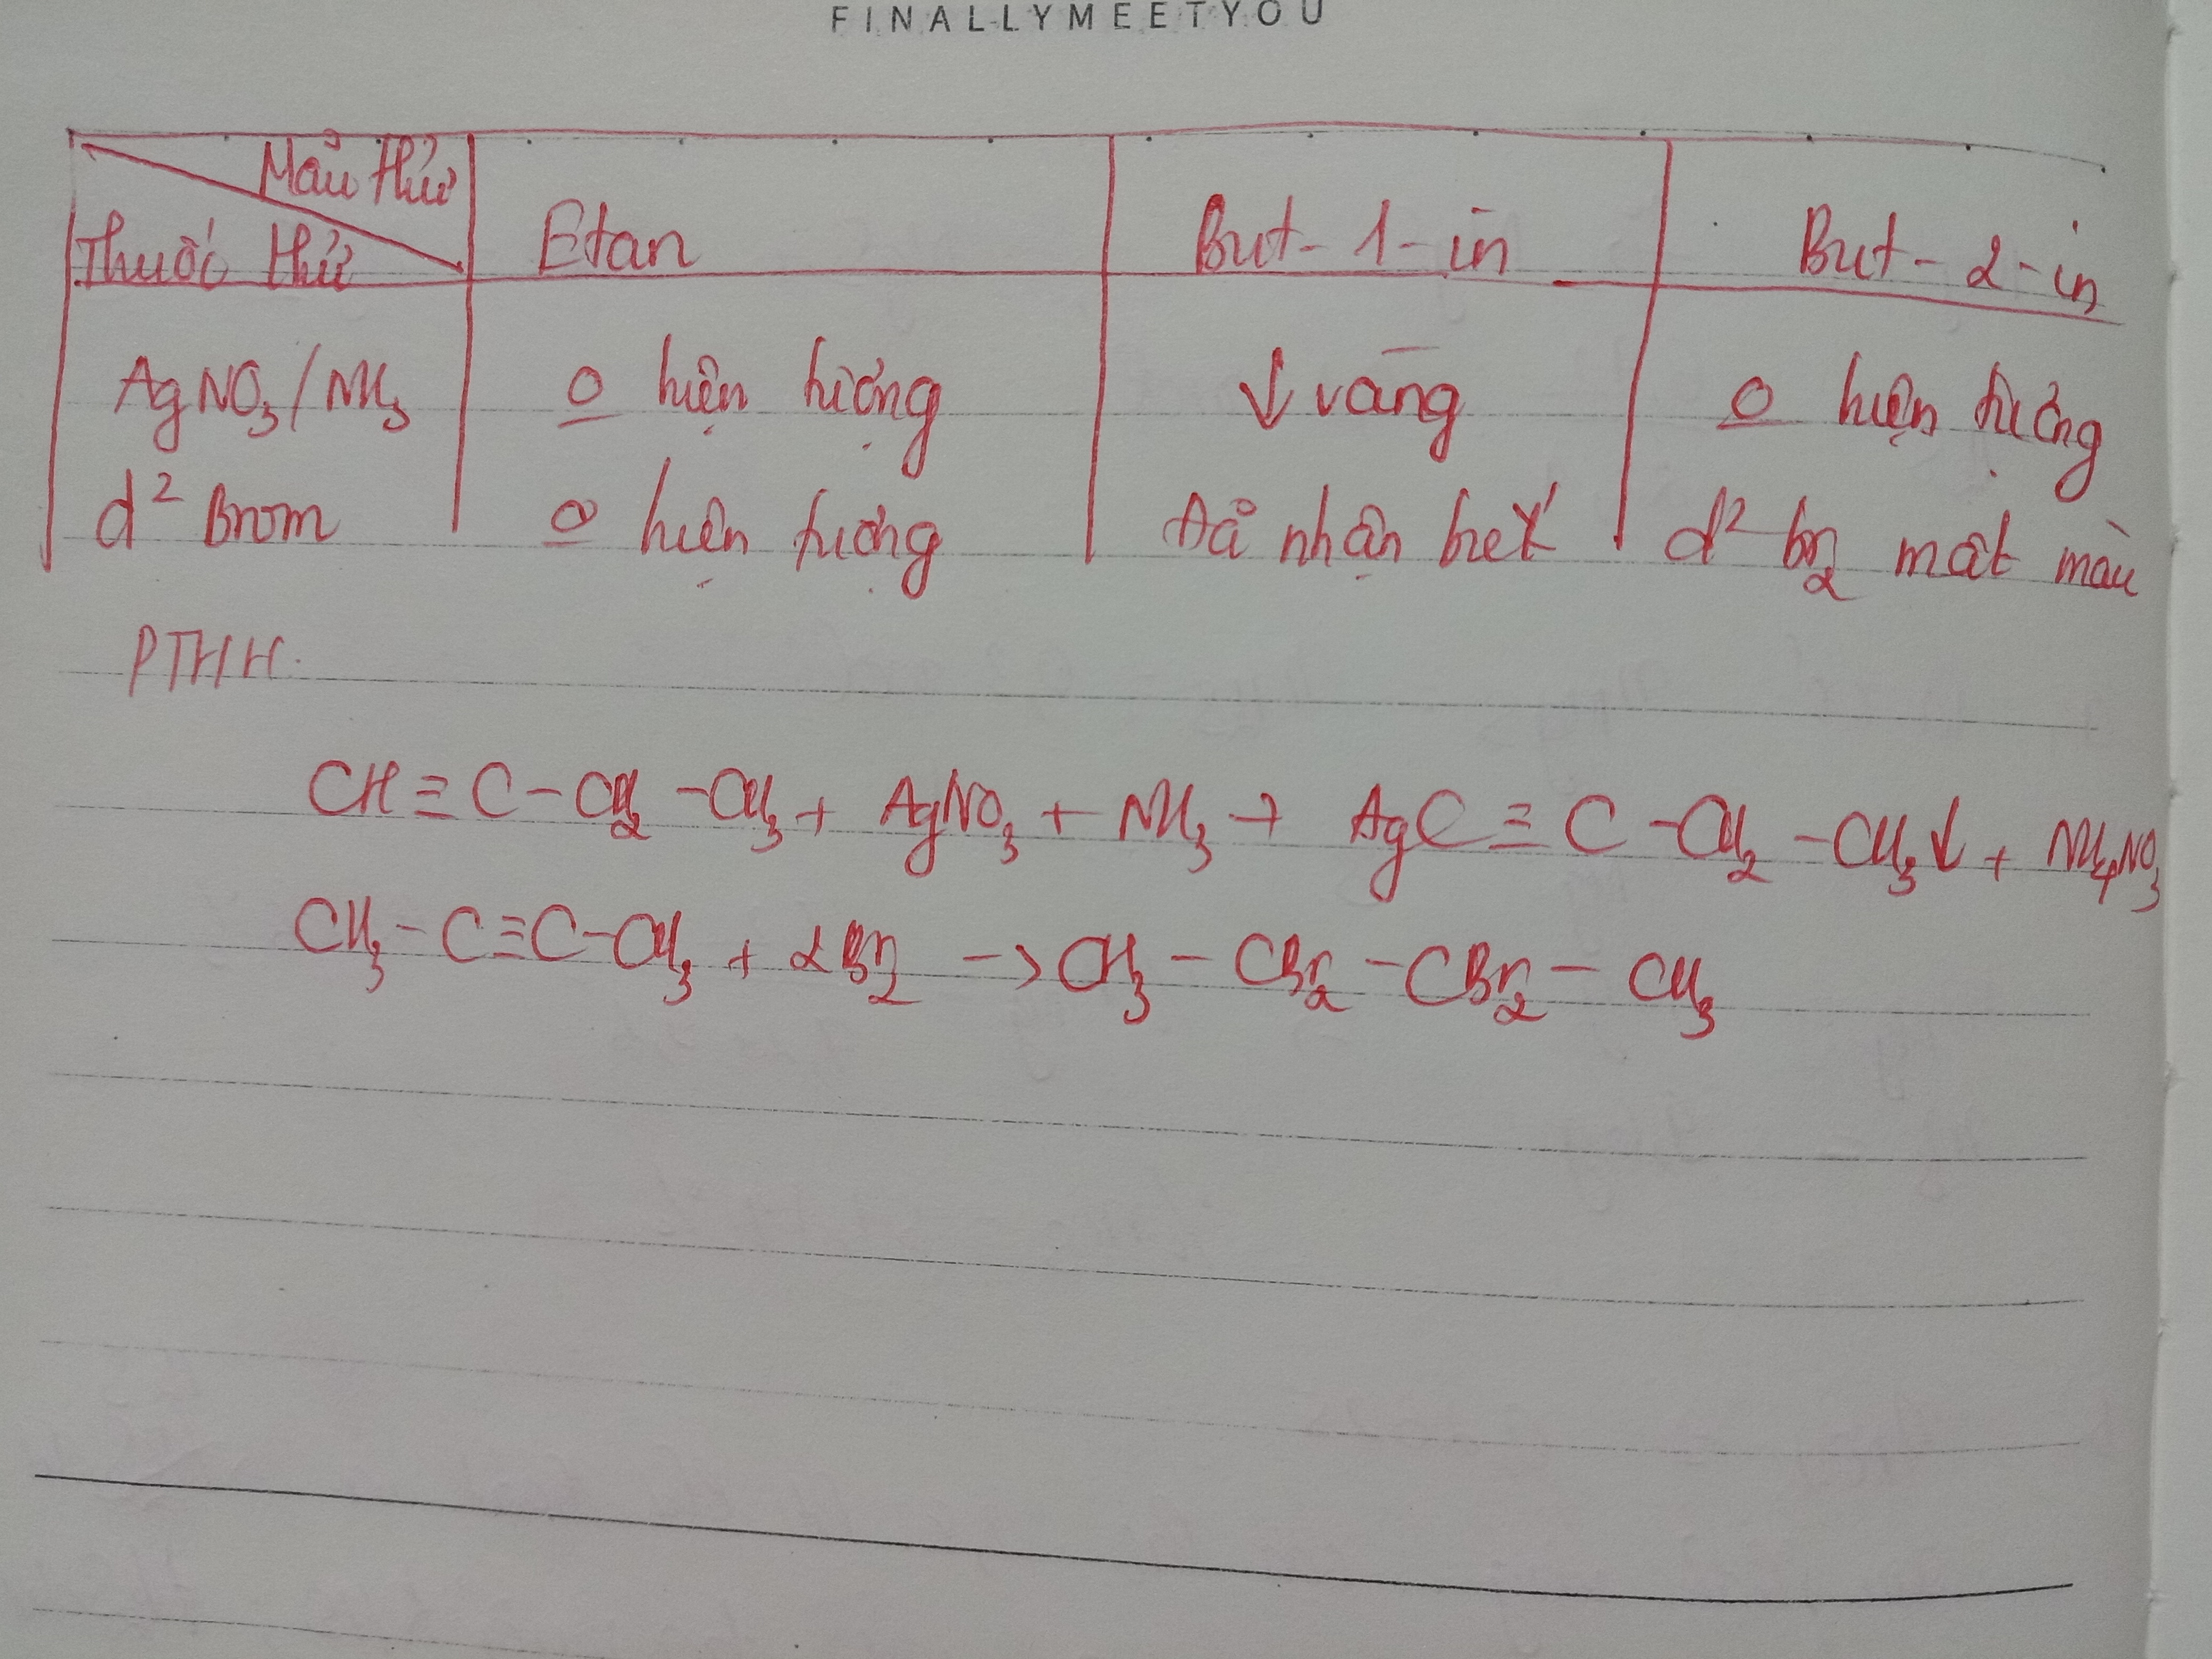 FINALLYMEETYOU
Mẫu thử
Thuốc thử Etan But-1-in But-2-in
AgNO3/NH3 o hiện tượng ↓ vàng o hiện tượng
d² Brom o hiện tượng Đã nhận biết d² br2 mất màu
PTHH:
CH≡C-CH2-CH3 + AgNO3 + NH3 → AgC≡C-CH2-CH3↓ + NH4NO3
CH3-C≡C-CH3 + 2Br2 → CH3-CBr2-CBr2-CH3